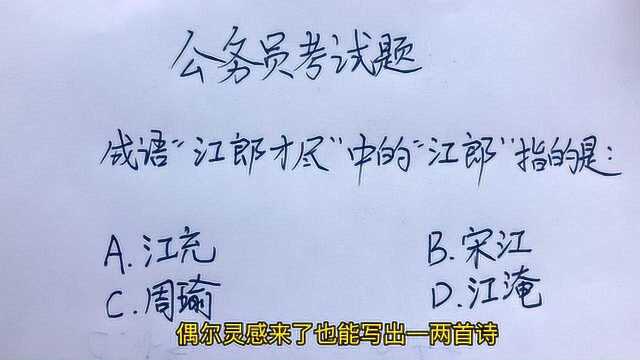 公务员考试题
成语“江郎才尽”中的“江郎”指的是:
A.江充 B.宋江
C.周瑜 D.江淹
偶尔灵感来了也能写出一两首诗